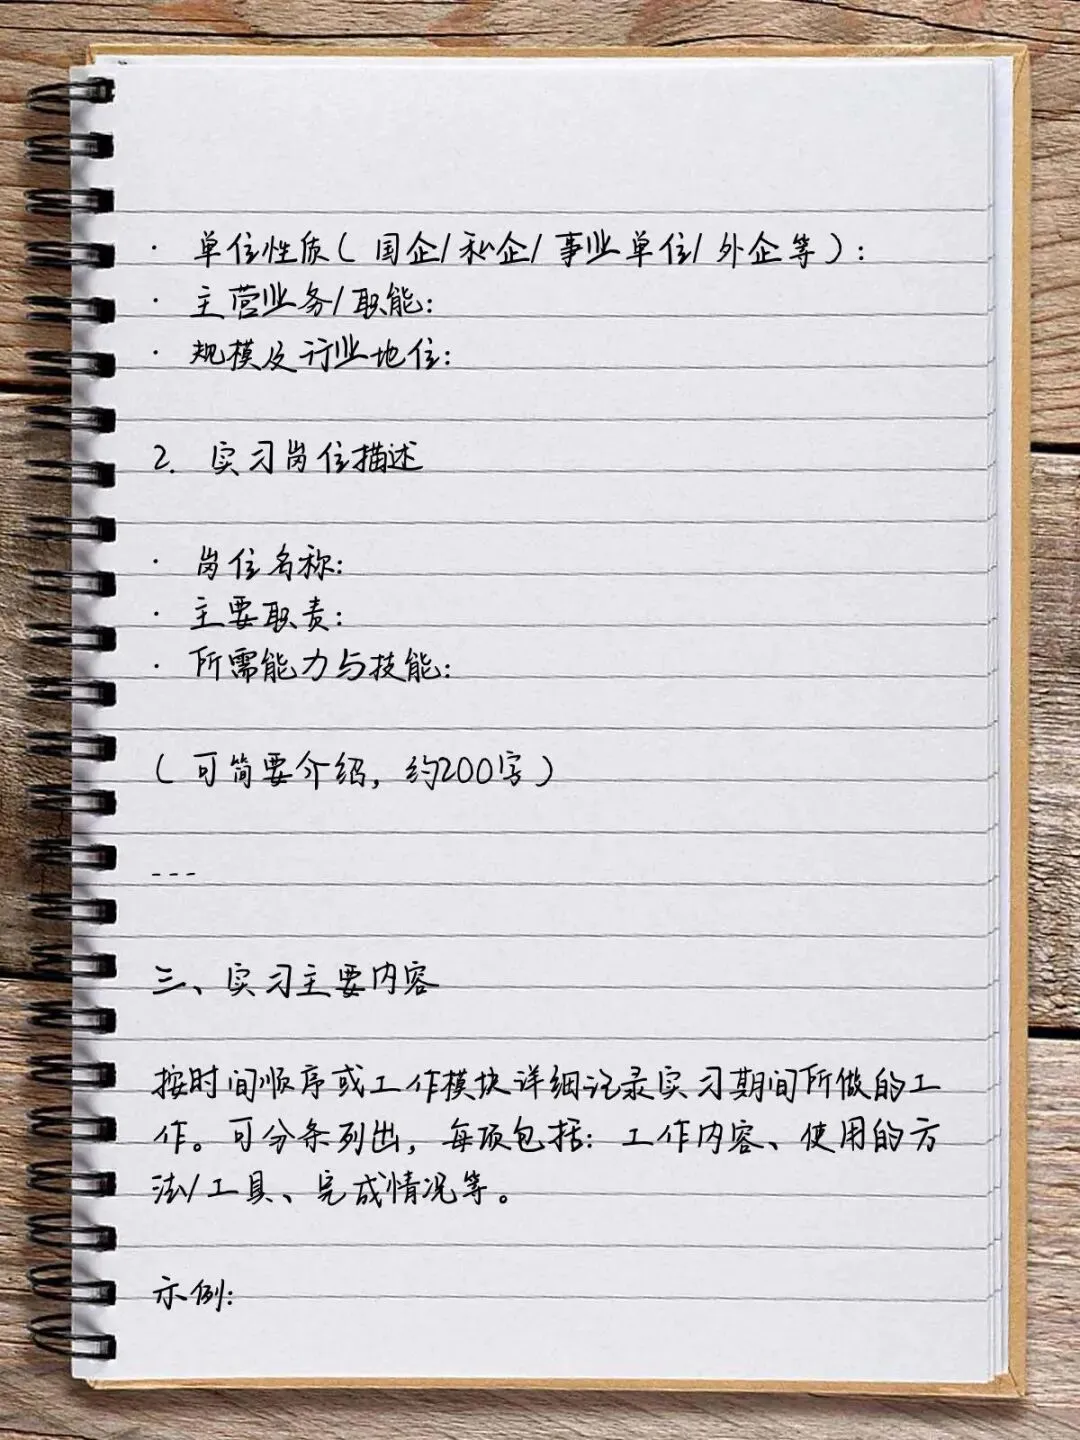 · 单位性质（国企/私企/事业单位/外企等）：
· 主营业务/职能：
· 规模及行业地位：
2. 实习岗位描述
· 岗位名称：
· 主要职责：
· 所需能力与技能：
（可简要介绍，约200字）
---
三、实习主要内容
按时间顺序或工作模块详细记录实习期间所做的工
作。可分条列出，每项包括：工作内容、使用的方
法/工具、完成情况等。
示例：